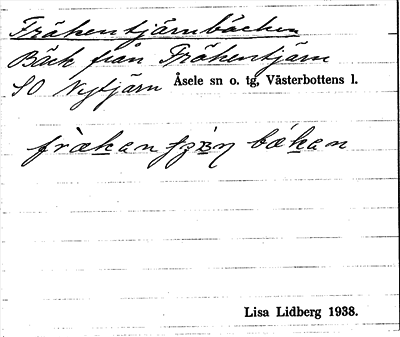 Fräkentjärnbäcken
Bäck från Fräkentjärn
SO Nytjärn Åsele sn o. tg, Västerbottens l.
bäkan
Lisa Lidberg 1938.